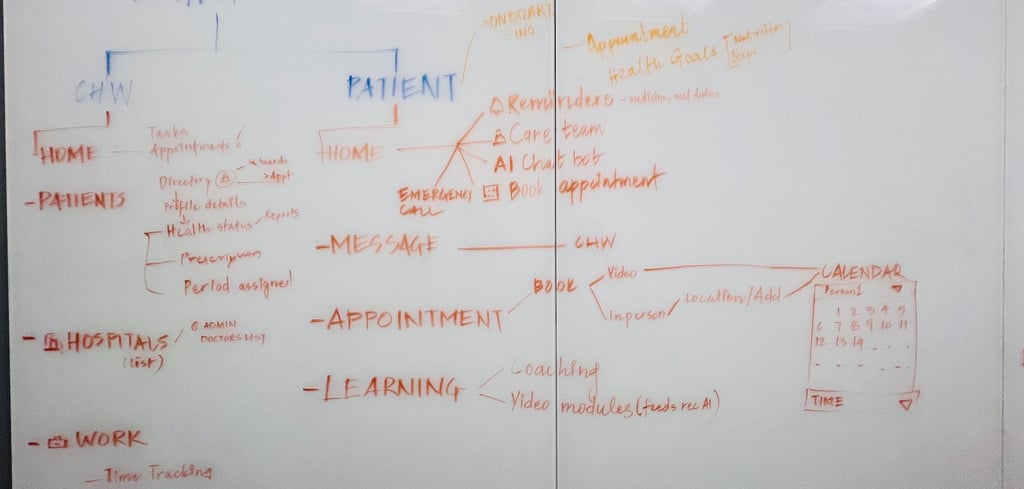 ONBOARD
ING
- Appointment
- Health Goals [Nutrition
Steps]
CHW
PATIENT
HOME
Tasks
Appointments
- PATIENTS
Directory
Search
> Appt
Profile details
Health status
Reports
Prescription
Period assigned
- HOSPITALS
(list)
@ ADMIN
DOCTORS LIST
- WORK
- Time Tracking
HOME
Reminders - medicine,
Care team
AI Chat bot
Book appointment
EMERGENCY
CALL
- MESSAGE
CHW
- APPOINTMENT
BOOK
Video
Inperson
Location/Add
CALENDAR
Person1
1 2 3 4 5
6 7 8 9 10 11
12 13 14 . . .
- - - - -
TIME
- LEARNING
Coaching
Video modules (feeds rec AI)